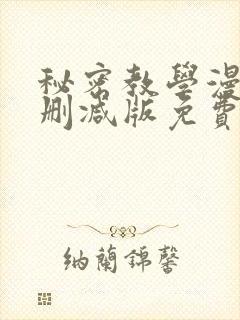 秘密教學漫
刪減版免費
納蘭錦馨